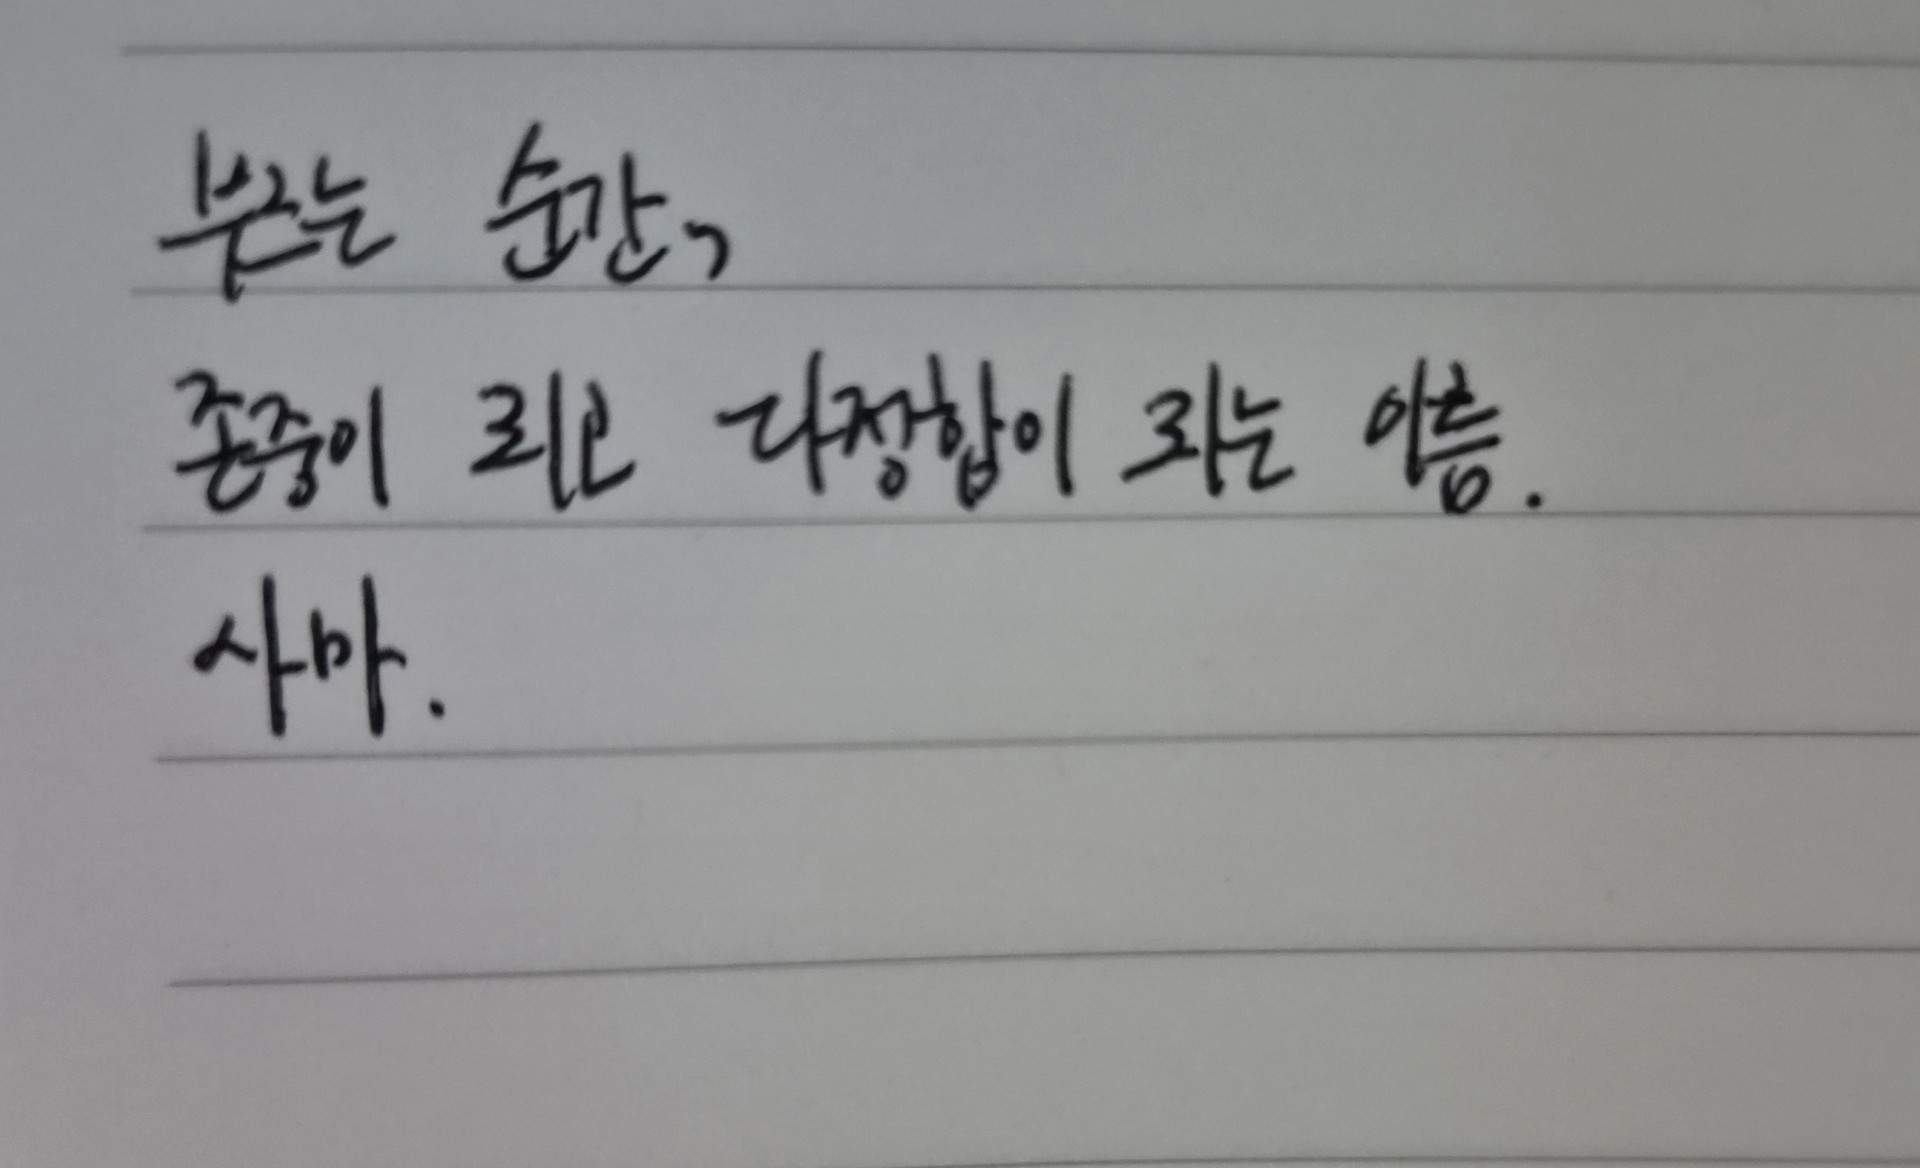 부르는 순간,
존중이 되고 다정함이 되는 이름.
사마.